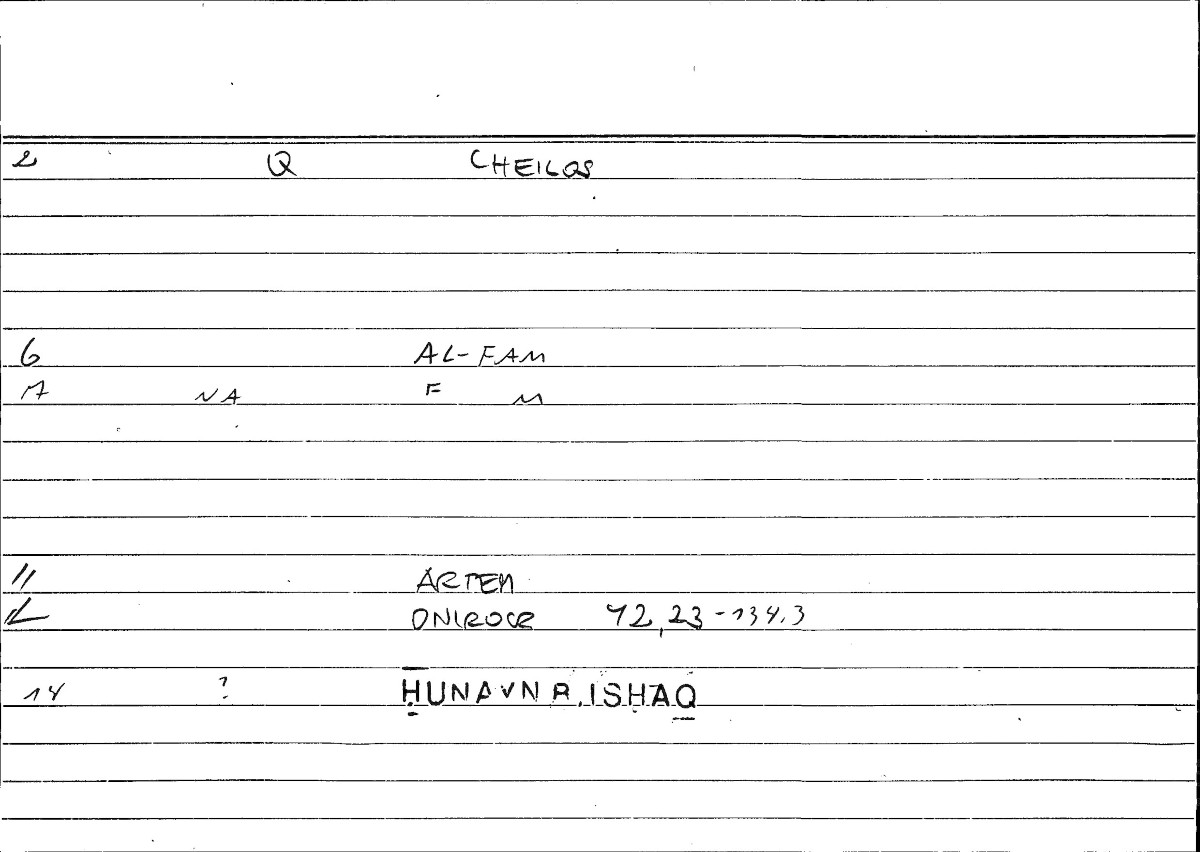 2 Q CHEILOS
6 AL-FAM
7 NA F M
11 ARTEM
12 ONIROCR 42,23-134.3
14 ? ḤUNAYN B. ISḤĀQ